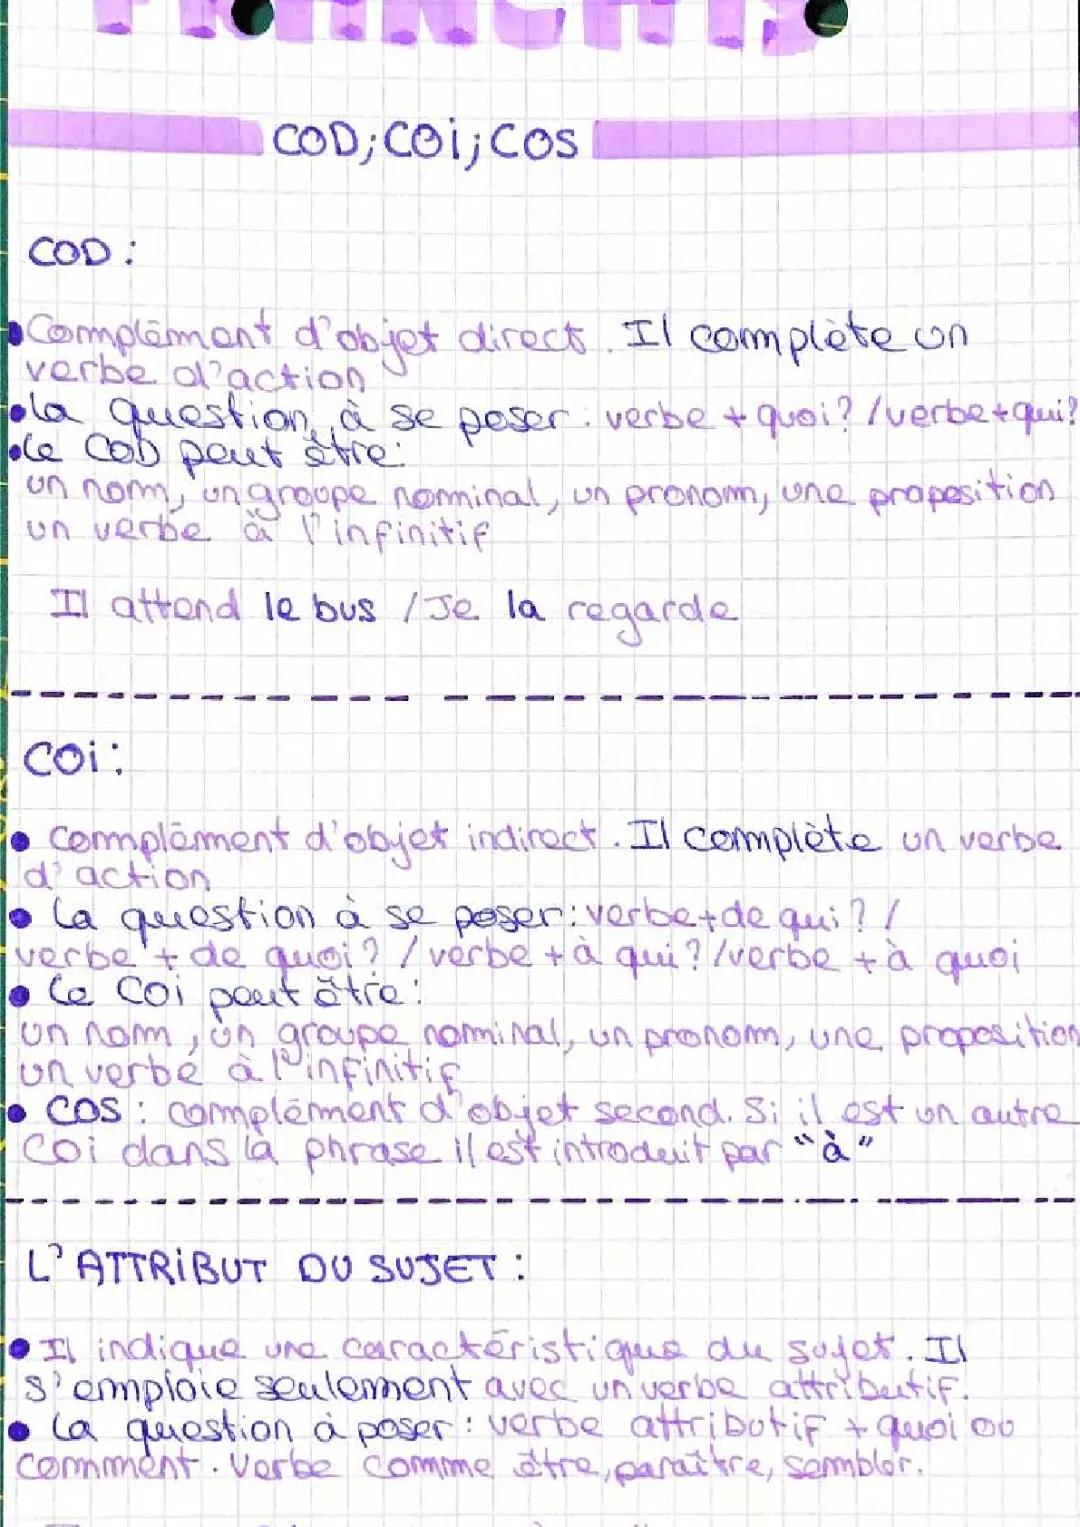 FRANCAIS
COD; COi; COS
COD :
Complément d'objet direct. Il complète un
verbe d'action
la question à se poser : verbe + quoi? / verbe + qui?
Le COD peut être :
un nom, un groupe nominal, un pronom, une proposition
un verbe à l'infinitif
Il attend le bus / Je la regarde
COi :
complément d'objet indirect. Il complète un verbe
d'action
La question à se poser : verbe + de qui? /
verbe + de quoi? / verbe + à qui? / verbe + à quoi
Le COi peut être :
un nom, un groupe nominal, un pronom, une proposition
un verbe à l'infinitif
COS : complément d'objet second. Si il est un autre
COi dans la phrase il est introduit par "à"
L'ATTRiBUT DU SUJET :
Il indique une caractéristique du sujet. Il
s'emploie seulement avec un verbe attributif.
La question à poser : verbe attributif + quoi ou
comment. Verbe comme être, paraître, sembler.